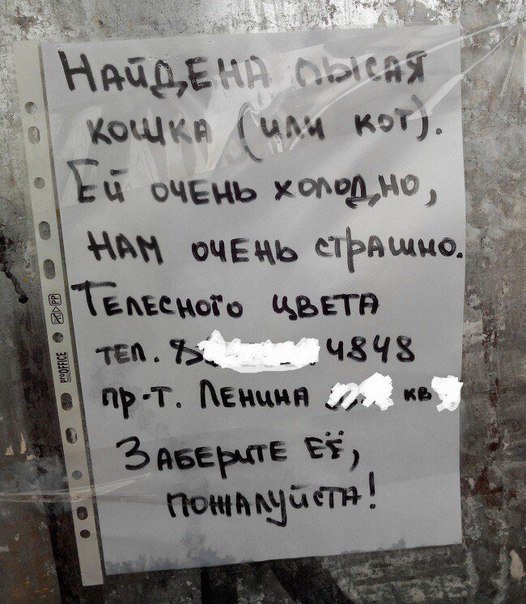 НАЙДЕНА ЛЫСАЯ
КОШКА (ИЛИ КОТ).
ЕЙ ОЧЕНЬ ХОЛОДНО,
НАМ ОЧЕНЬ СТРАШНО.
ТЕЛЕСНОГО ЦВЕТА
ТЕЛ. 8 4848
ПР-Т. ЛЕНИНА КВ
ЗАБЕРИТЕ ЕЁ,
ПОЖАЛУЙСТА!
proOFFICE PP